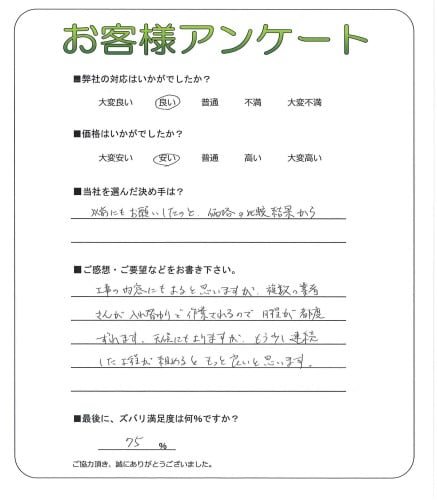 お客様アンケート
■弊社の対応はいかがでしたか？
大変良い 良い 普通 不満 大変不満
■価格はいかがでしたか？
大変安い 安い 普通 高い 大変高い
■当社を選んだ決め手は？
以前にもお願いしたのと、価格の比較結果から
■ご感想・ご要望などをお書き下さい。
工事の内容にもよると思いますが、複数の業者
さんが入れ替わりで作業されるので日程が都度
ずれます。天候にもよりますが、もう少し連続
した工程が組めるともっと良いと思います。
■最後に、ズバリ満足度は何%ですか？
75 %
ご協力頂き、誠にありがとうございました。